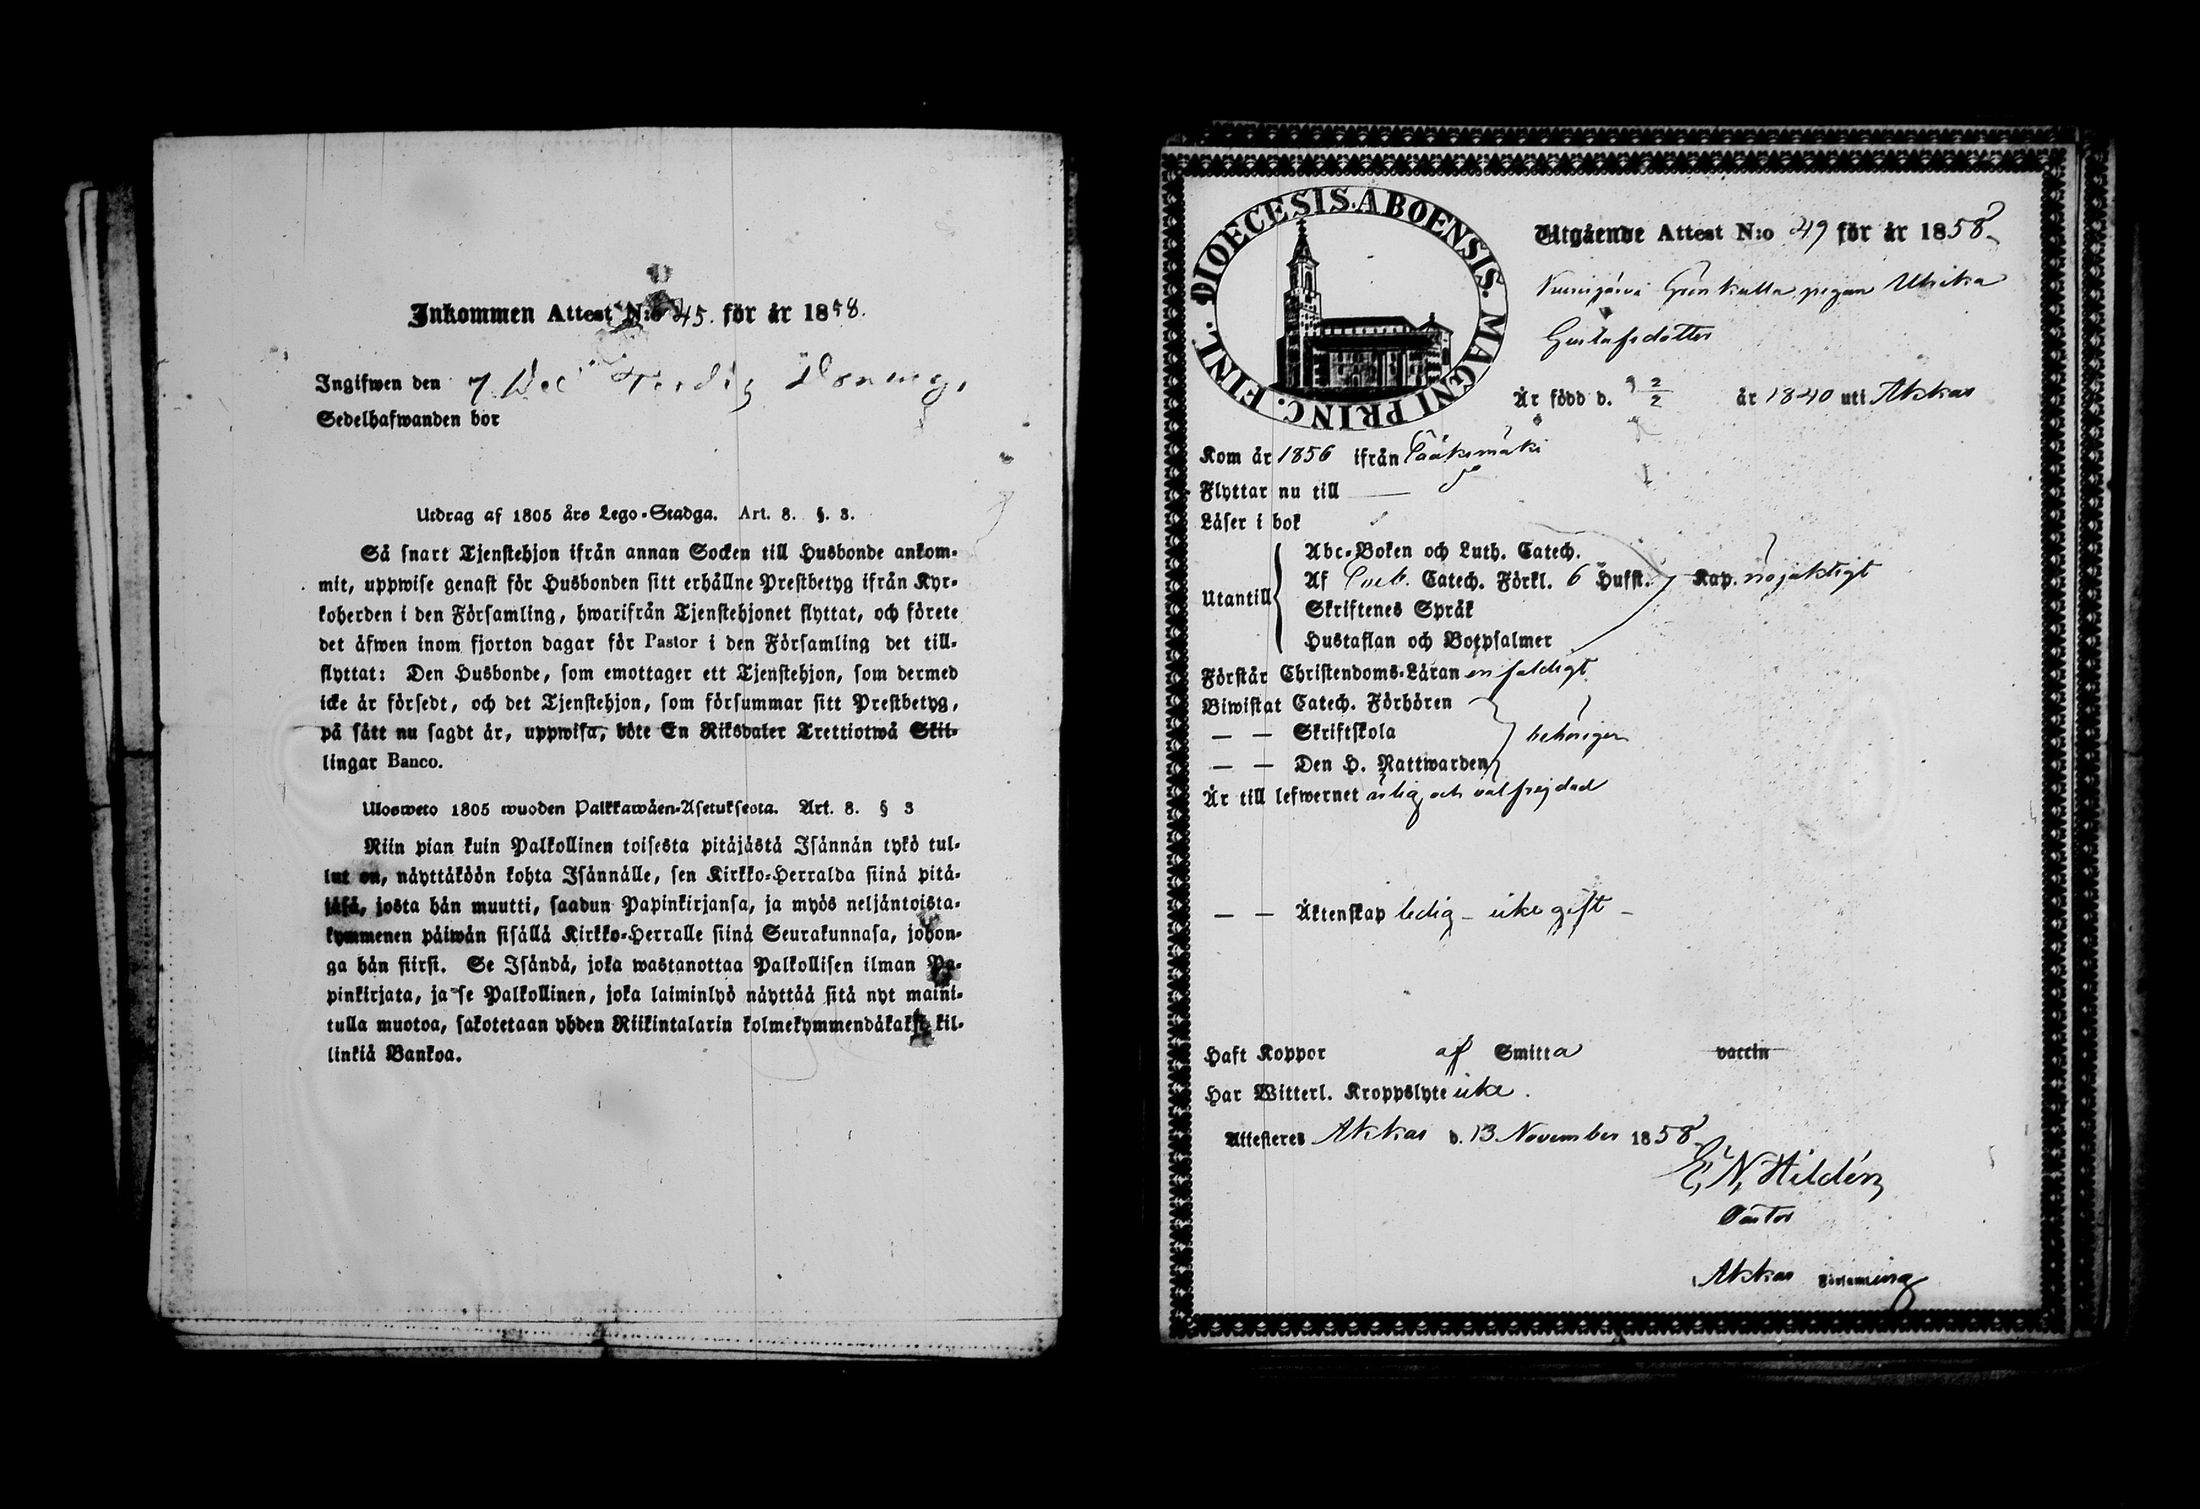 Inkommen Attest N:o 45. för år 1858.
Ingifwen den 7 Dec
Sedelhafwanden bor
Utdrag af 1805 års Lego-Stadga. Art. 8. §. 3.
Så snart Tjenstehjon ifrån annan Socken till Husbonde ankom-
mit, uppwise genast för Husbonden sitt erhållne Prestbetyg ifrån Kyr-
koherden i den Församling, hwarifrån Tjenstehjonet flyttat, och förete
det äfwen inom fjorton dagar för Pastor i den Församling det till-
flyttat: Den Husbonde, som emottager ett Tjenstehjon, som dermed
icke är försedt, och det Tjenstehjon, som försummar sitt Prestbetyg,
på sätt nu sagdt är, uppwisa, böte En Riksdaler Trettiotwå Skil-
lingar Banco.
Ulosweto 1805 wuoden Palkkawäen-Asetuksesta. Art. 8. § 3
Niin pian kuin Palkollinen toisesta pitäjästä Isännän tykö tul-
lut on, näyttäköön kohta Isännälle, sen Kirkko-Herralda siinä pitä-
jäsä, josta hän muutti, saadun Papinkirjansa, ja myös neljäntoista-
kymmenen päiwän sisällä Kirkko-Herralle siinä Seurakunnasa, johon-
ga hän siirst. Se Isändä, joka wastanottaa Palkollisen ilman Pa-
pinkirjata, ja se Palkollinen, joka laiminlyö näyttää sitä nyt maini-
tulla muotoa, sakotetaan yhden Riikintalarin kolmekymmendäkaksi kil-
linkiä Bankoa.
DIOECESIS. ABOENSIS. MAGNI PRINC. FINL.
Utgående Attest N:o 49 för år 1858
pigan Ulrika
Gustafsdotter
Är född d. 2/2 år 1840 uti Akkas
Kom år 1856 ifrån Sääksmäki
Flyttar nu till
Läser i bok
Utantill
Abc-Boken och Luth. Catech.
Af Catech. Förkl. 6 Hufst. Kap. nöjaktigt
Skriftenes Språk
Hustaflan och Botpsalmer
Förstår Christendoms-Läran enfaldigt
Biwistat Catech. Förhören
— — Skriftskola behörigen
— — Den H. Nattwarden
Är till lefwernet ärlig och välfrejdad
— — Äktenskap ledig - icke gift -
Haft Koppor af Smitta vaccin
Har Witterl. Kroppslyte icke.
Attesteres Akkas d. 13 November 1858
E. N. Hildén
Pastor
Akkas Församling